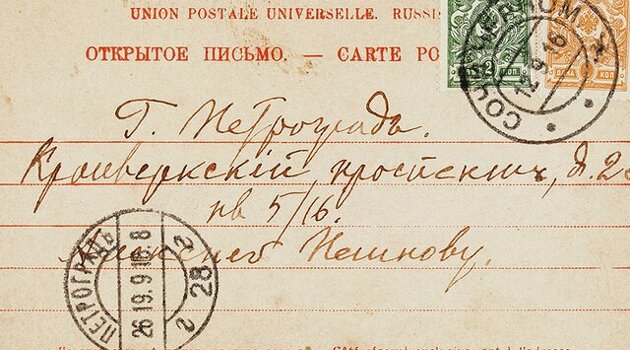 UNION POSTALE UNIVERSELLE. RUSSI
ОТКРЫТОЕ ПИСЬМО. — CARTE PO
2 КОП.
ОДНА КОП.
СОЧИ ЧЕРНОМ
12 9 16
Г. Петроградъ.
Кронверкскій проспектъ, д. 23
кв 5/16.
Пешкову.
ПЕТРОГРАДЪ
26 19.9.16 8
12
28